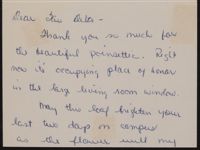 Dear Tri Delts -
Thank you so much for
the beautiful poinsettia. Right
now it's occupying place of honor
in the large living room window.
May this leaf brighten your
last two days on campus
as the flower will my